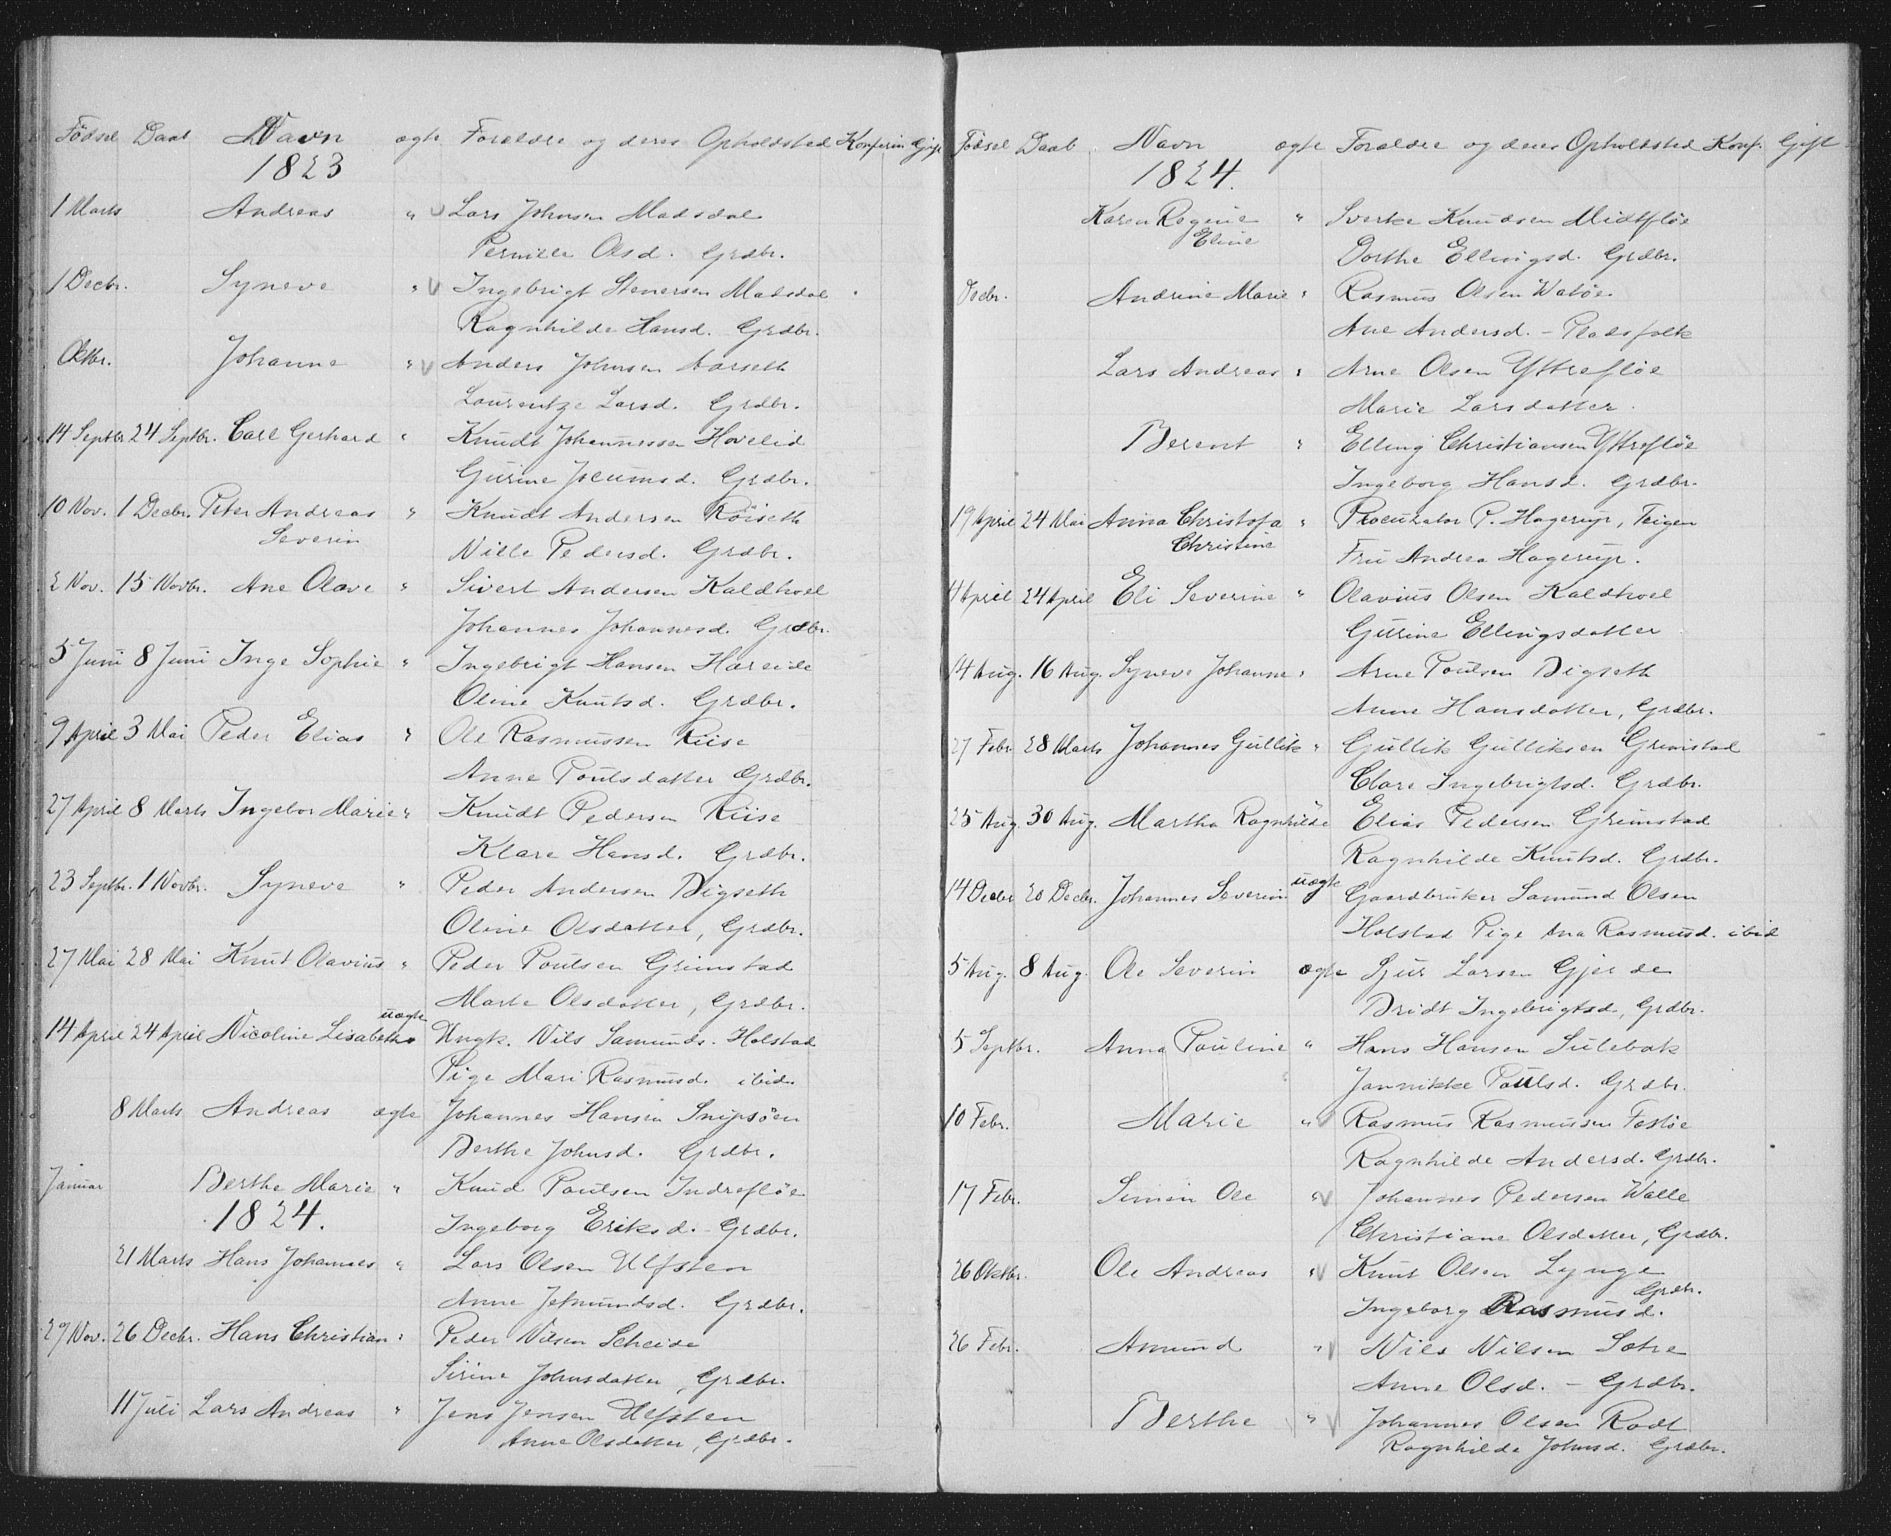 Fødsel Daab Navn ægte Forældre og deres Opholdsted Konfirm Gift
1823
1 Marts Andreas " Lars Johnsen Madsdal
Pernille Olsd. Grdbr.
1 Decbr. Syneve " Ingebrigt Stenersen Matsdal
Ragnhilde Hansd. Grdbr.
Oktbr. Johanne " Anders Johnsen Aarseth
Laurentze Larsd. Grdbr.
14 Septbr 24 Septbr. Carl Gerhard " Knudt Johannessen Hovelid
Gurine Jocumsd. Grdbr.
10 Nov. 1 Decbr. Peter Andreas " Knudt Andersen Røiseth
Severin
Nille Pedersd. Grdbr.
2 Nov. 15 Novbr. Ane Olave " Sivert Andersen Kaldhoel
Johannes Johannesd. Grdbr.
5 Juni 8 Juni Inge Sophie " Ingebrigt Hansen Hareide
Oline Knutsd. Grdbr.
9 April 3 Mai Peder Elias " Ole Rasmussen Riise
Anne Poulsdatter Grdbr.
27 April 8 Marts Ingebor Marie " Knudt Pedersen Riise
Klare Hansd. Grdbr.
23 Septbr. 1 Novbr. Syneve " Peder Andersen Bigseth
Oline Olsdatter, Grdbr.
27 Mai 28 Mai Knut Olavius " Peder Poulsen Grimstad
Marte Olsdatter, Grdbr.
14 April 24 April Nicoline Lisabeth uægte Ungk. Nils Samunds. Holstad
Pige Mari Rasmusd. ibid.
8 Marts Andreas ægte Johannes Hansen Snipsøen
Berthe Johnsd. Grdbr.
Januar Berthe Marie " Knud Poulsen Indrefløe
1824. Ingeborg Eriksd. Grdbr.
21 Marts Hans Johannes " Lars Olsen Ulfsten
Anne Jetmundsd. Grdbr.
29 Nov. 26 Decbr. Hans Christian " Peder Nilsen Scheide
Sirine Johnsdatter, Grdbr.
11 Juli Lars Andreas " Jens Jensen Ulfsten
Anne Olsdatter, Grdbr.
Fødsel Daab Navn ægte Forældre og deres Opholdsted Konf. Gift
1824.
Karen Regine " Sverke Knudsen Midtfløe
Eline
Dorthe Ellingsd. Grdbr.
Decbr. Andrine Marie " Rasmus Olsen Watøe
Ane Andersd. - Pladsfolk
Lars Andreas " Arne Olsen Yttrefløe
Marie Larsdatter.
Berent " Elling Christiansen Yttrefløe
Ingeborg Hansd. Grdbr.
19 April 24 Mai Anna Christofa " Procurator P. Hagerup, Teigen
Christine
Fru Andrea Hagerup.
4 April 24 April Eli Severine " Olavius Olsen Kaldhoel
Gurine Ellingsdatter
14 Aug. 16 Aug. Syneve Johanne " Arne Poulsen Bigseth
Anne Hansdatter, Grdbr.
27 Febr 28 Marts Johannes Gullik " Gullik Gulliksen Grimstad
Clare Ingebrigtsd. Grdbr.
25 Aug. 30 Aug. Martha Ragnhilde " Elias Pedersen Grimstad
Ragnhilde Knutsd. Grdbr.
14 Decbr 20 Decbr. Johannes Severin uægte Gaardbruker Samund Olsen
Holstad Pige Ana Rasmusd. ibid
5 Aug. 8 Aug. Ole Severin ægte Sjur Larsen Gjerde
Bridt Ingebrigtsd, Grdbr.
5 Septbr. Anna Pouline " Hans Hansen Sulebak
Jannikke Poulsd. Grdbr.
10 Febr. Marie " Rasmus Rasmussen Fostøe
Ragnhilde Andersd. Grdbr.
17 Febr. Simen Ole " Johannes Pedersen Walle
Christiane Olsdatter, Grdbr.
26 Oktbr. Ole Andreas " Knut Olsen Lynge
Grdbr.
Ingeborg Rasmusd.
26 Febr. Amund " Nils Nilsen Sætre
Anne Olsd. - Grdbr.
Berthe " Johannes Olsen Rødt
Ragnhilde Johnsd. Grdbr.